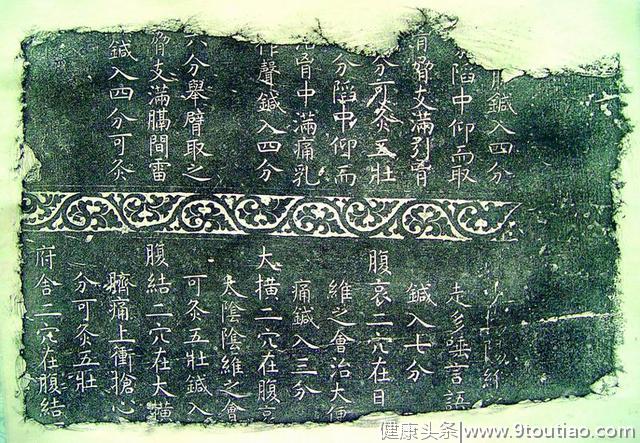 鍼入四分
陷中仰而取
脅支滿引胷
分可灸五壯
分陷中仰而
胷中滿痛乳
作聲鍼入四分
六分舉臂取之
脅支滿膈間雷
鍼入四分可灸
陽維
走多唾言語
鍼入七分
腹哀二穴在日
維之會治大便
痛鍼入三分
大橫二穴在腹哀
太陰陰維之會
可灸五壯鍼入
腹結二穴在大橫
臍痛上衝搶心
分可灸五壯
府舍二穴在腹結
健康头条|www.9toutiao.com